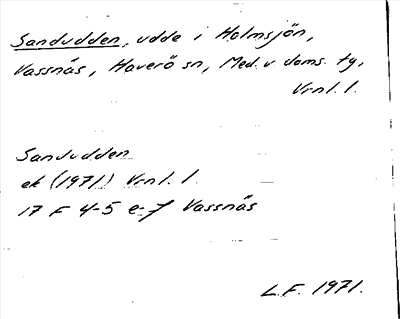 Sandudden, udde i Holmsjön,
Vassnäs, Haverö sn, Med. v doms. tg,
Vrnl. l.
Sandudden
ek (1971) Vrnl. l.
17 F 4-5 e-f Vassnäs
L.F. 1971.